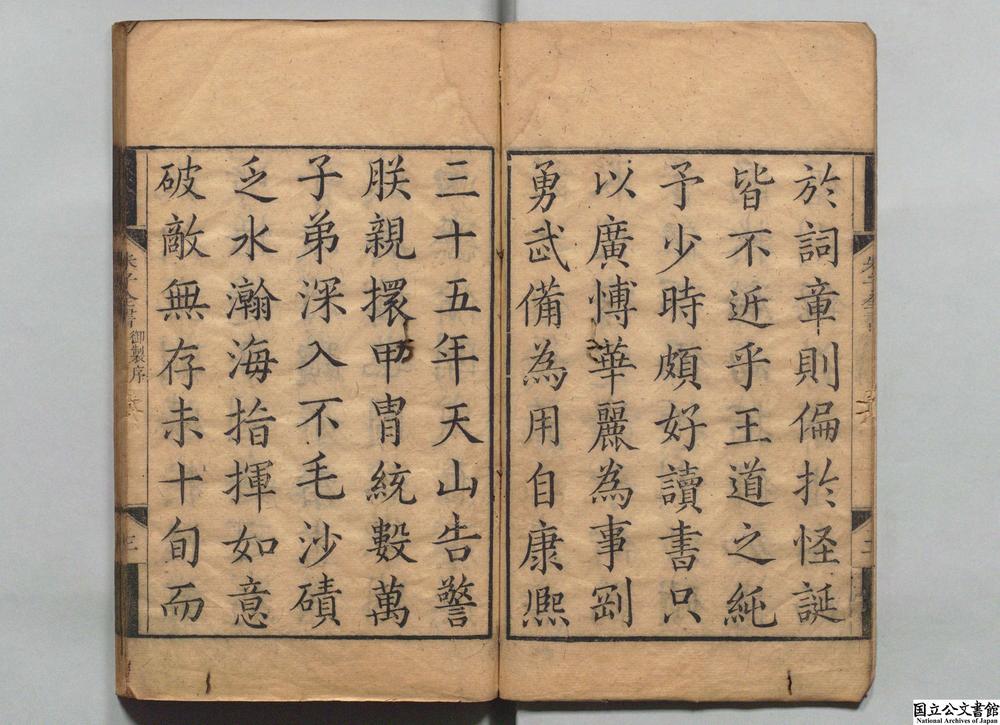 於詞章則偏扵怪誕
皆不近乎王道之純
予少時頗好讀書只
以廣愽華麗為事剛
勇武備為用自康熈
三十五年天山告警
朕親擐甲胄統數萬
子弟深入不毛沙磧
乏水瀚海指揮如意
破敵無存未十旬而
御製序
三
国立公文書館
National Archives of Japan